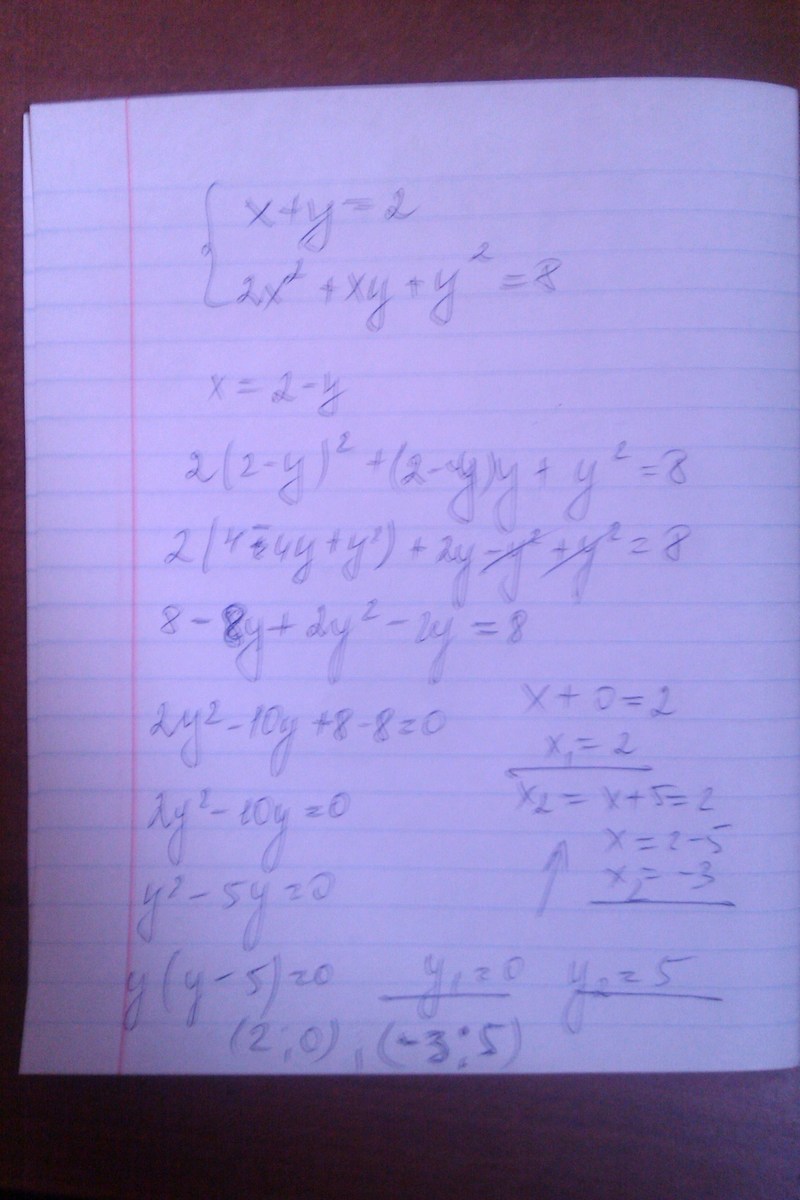 x+y=2
2x²+xy+y²=8
x=2-y
2(2-y)²+(2-y)y+y²=8
2(4-4y+y²)+2y-y²+y²=8
8-8y+2y²-2y=8
2y²-10y+8-8=0
2y²-10y=0
y²-5y=0
y(y-5)=0 y₁=0 y₂=5
(2;0), (-3;5)
x+0=2
x₁=2
x₂=x+5=2
x=2-5
x₂=-3